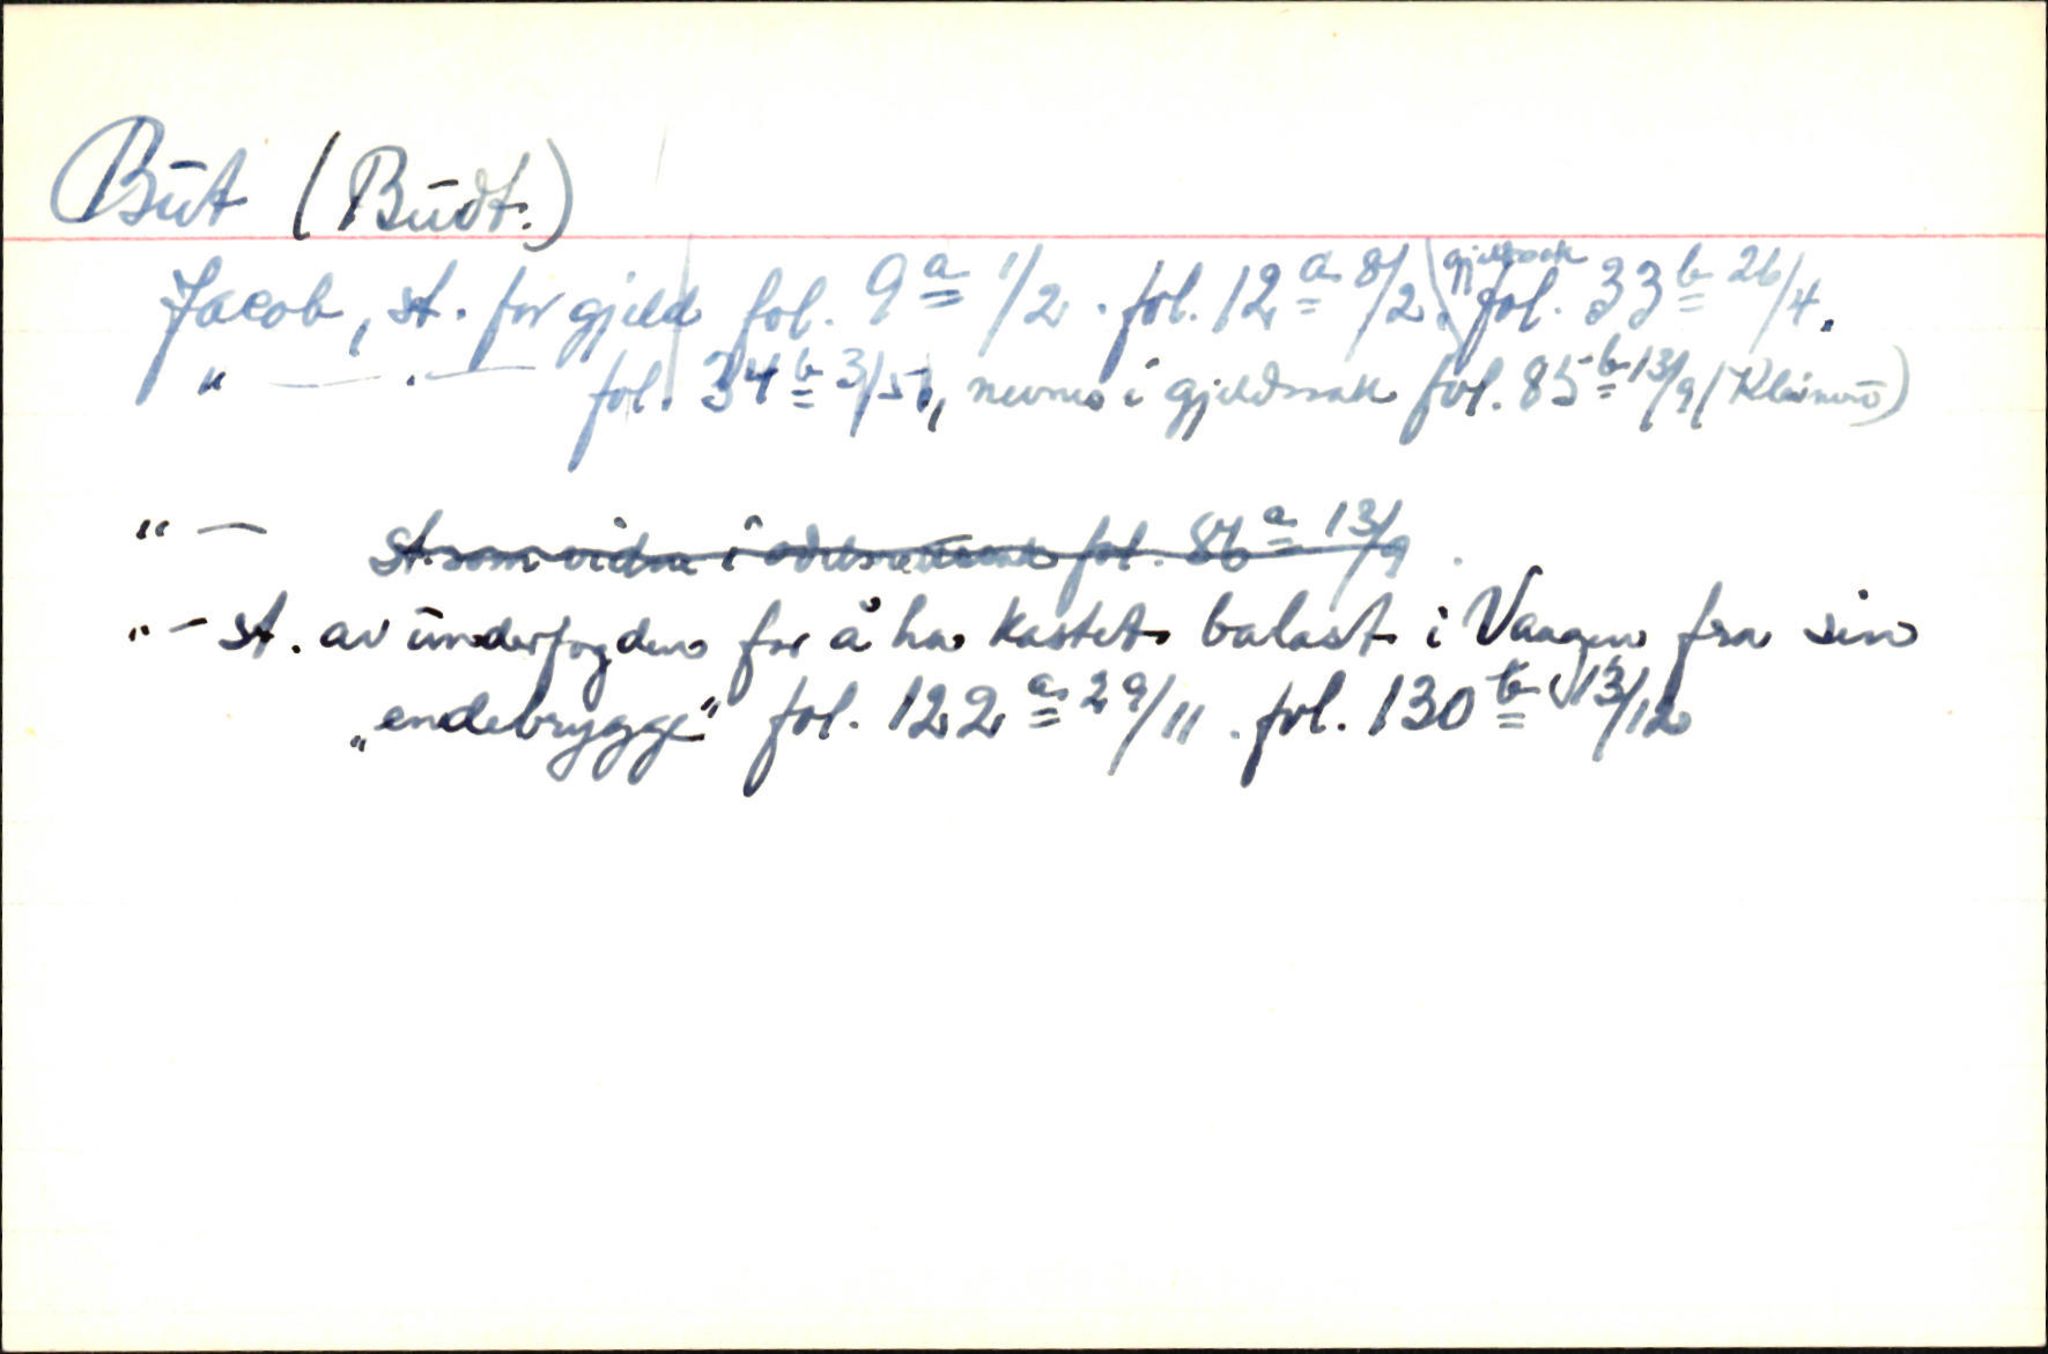 Būt (Būdt.)
Jacob, st. for gjeld fol. 9a 1/2. fol. 12a 8/2. gjeldssak fol. 33b 26/4.
" — . — fol. 34b 3/5, nevnes i gjeldssak fol. 85b 13/9 (
" — st. som vidne i fol. 86a 13/9.
" — st. av ūnderfogden for å ha kastet balast i Vaagen fra sin
„endebrygge" fol. 122a 29/11. fol. 130b 13/12